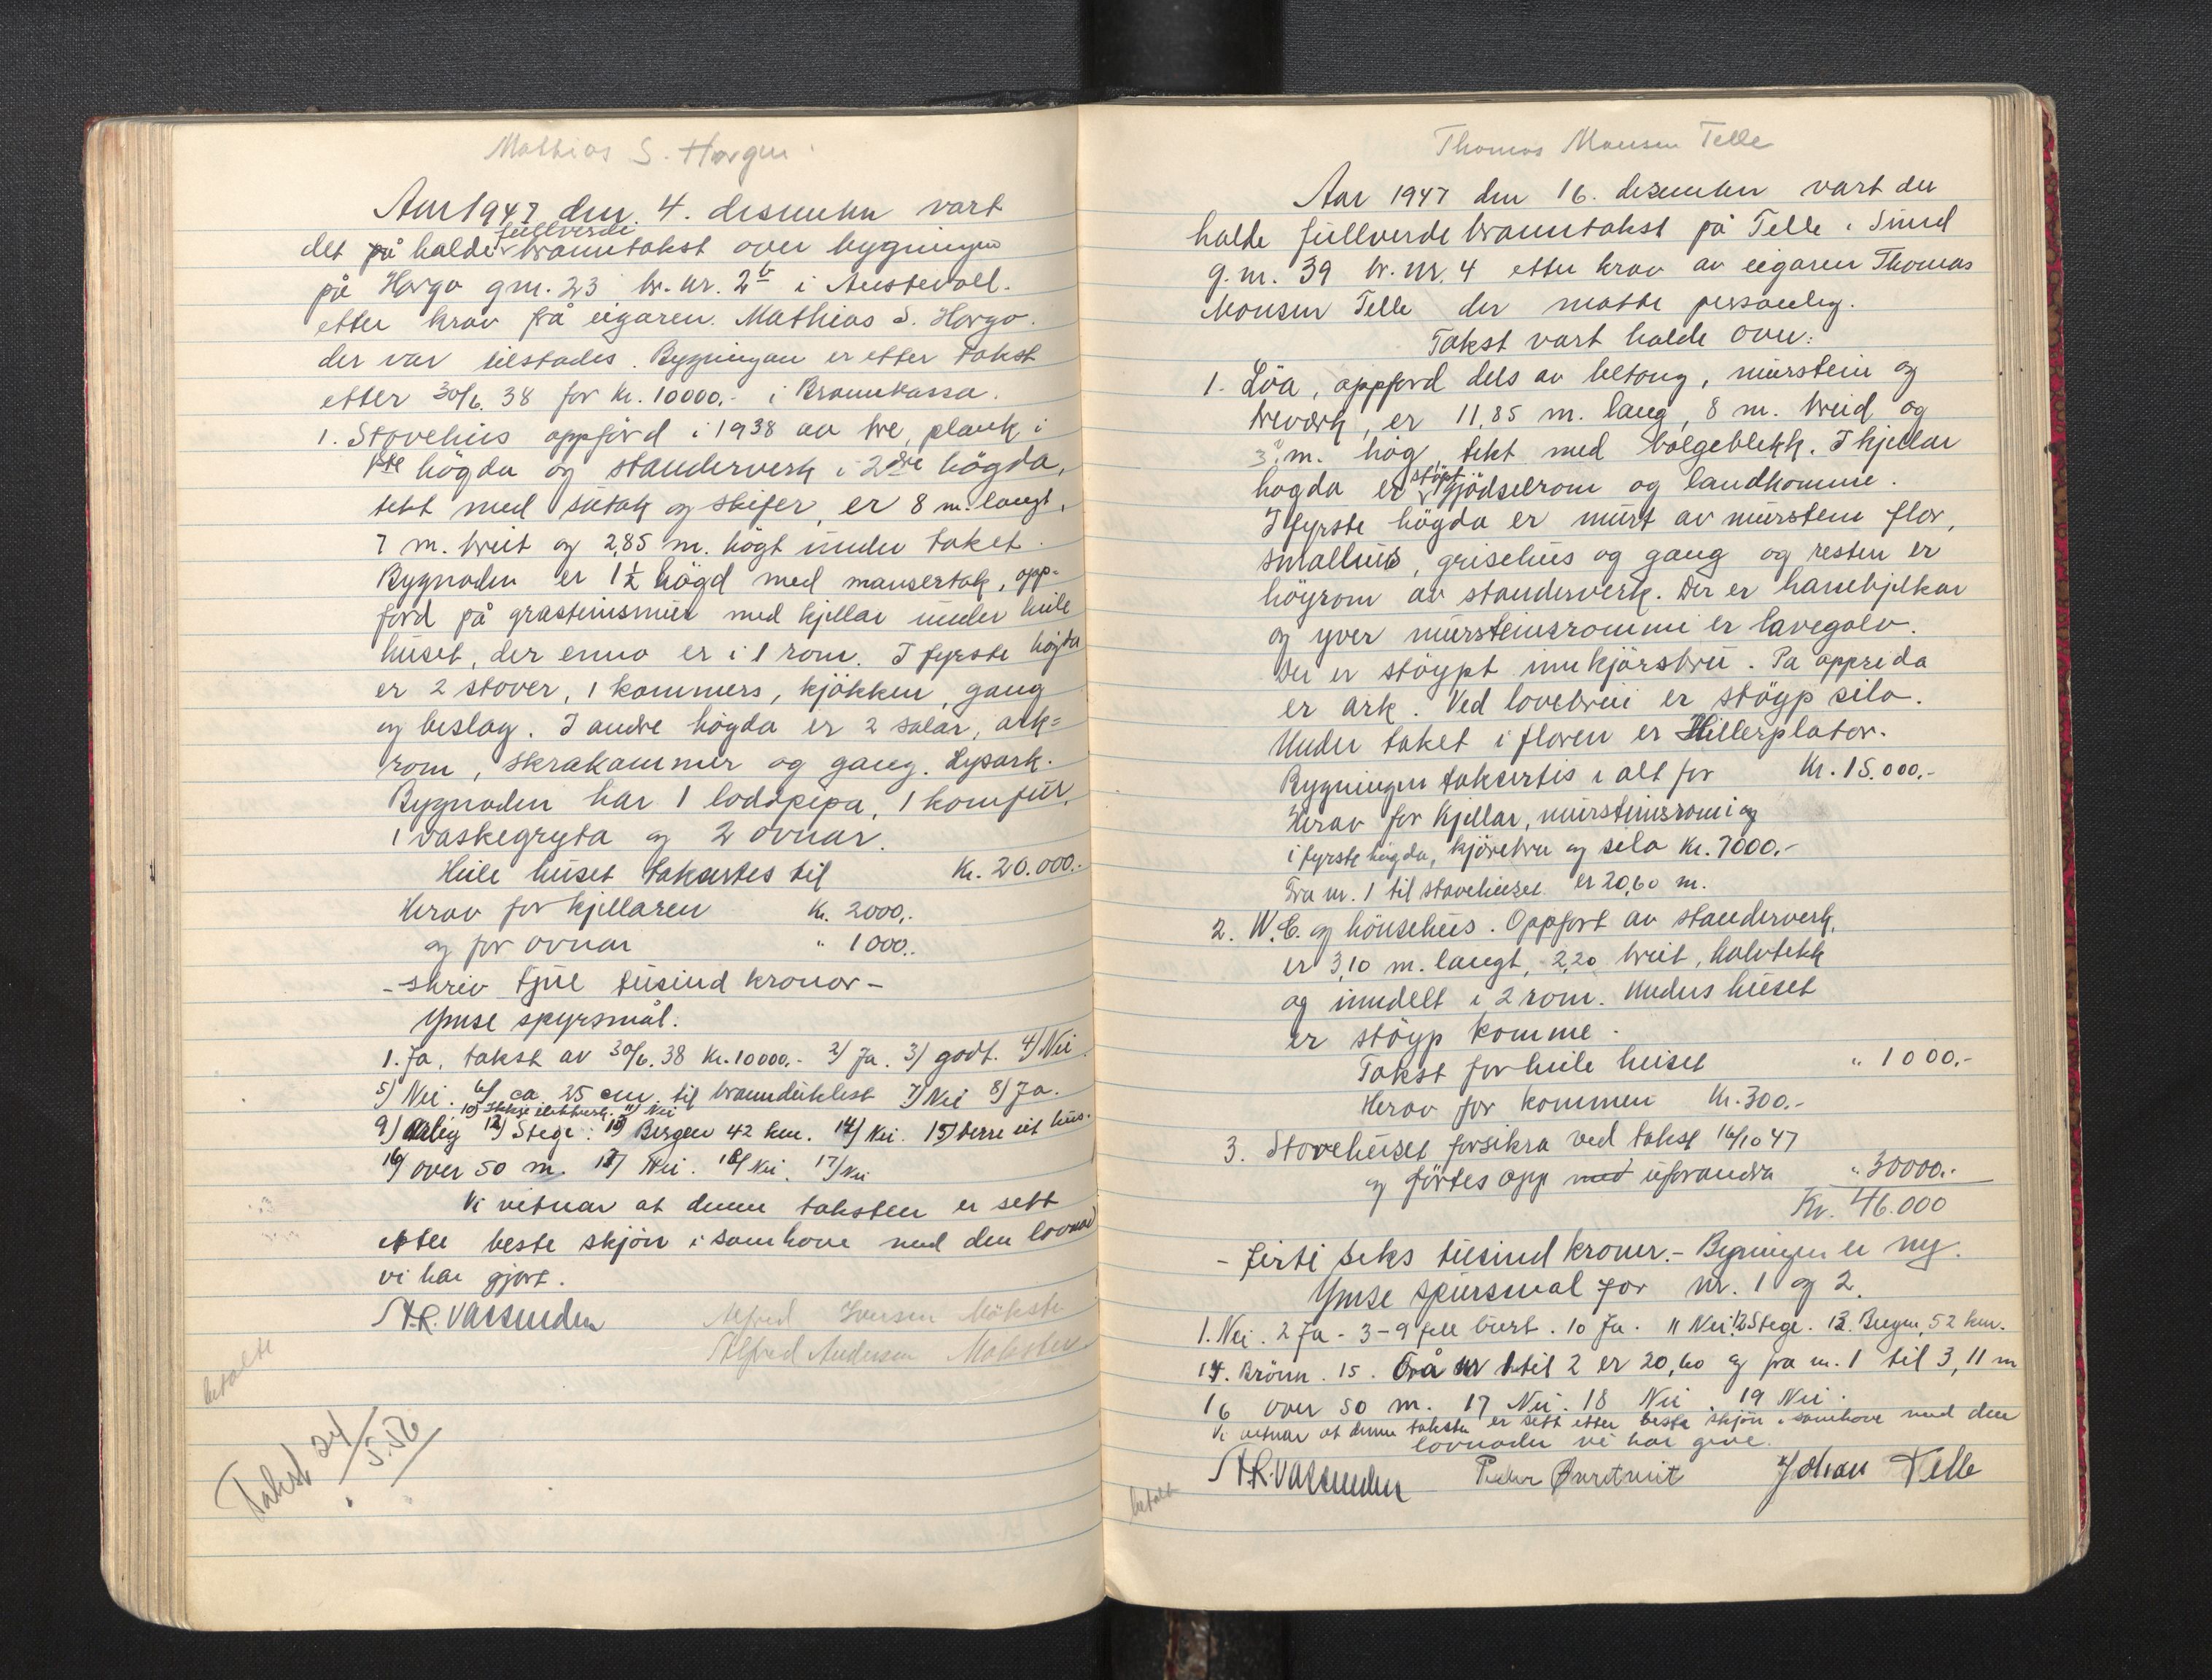 Mathias S. Horgen
Aar 1947 den 4. desember vart
det på halde fullverde branntakst over bygningen
på Horgo gnr. 23 br. nr. 2b i Austevoll.
etter krav på eigaren Mathias S. Horgo.
der var tilstades. Bygningan er etter takst
etter 30/6. 38 for kr. 10000.- i Brannkassa.
1. Stovehus oppförd i 1938 av tre, plank i
1ste högda og standerverk i 2dre högda,
tekt med sutak og skifer, er 8 m. langt,
7 m. breit og 2,85 m. högt under taket.
Bygnaden er 1½ högd med mansertak, opp-
förd på grasteinsmur med kjellar under heile
huset, der enno er i 1 rom. I fyrste högda
er 2 stover, 1 kammers, kjökken, gang
og beslag. I andre högda er 2 salar, ark=
rom, skrakammer og gang. Lysark.
Bygnaden har 1 loddpipa, 1 komfur,
1 vaskegryta og 2 ovnar.
Heile huset taksertes til Kr. 20.000.-
Herav for kjellaren Kr. 2000,.
og for ovnar " 1000..
- skriv tjue tusind kronor -
Ymse spyrsmål.
1. Ja, takst av 30/6. 38 Kr. 10000.- 2/ Ja. 3/ godt. 4/ Nei
5/ Nei. 6/ ca. 25 cm. til branndeiklest 7/ Nei 8/ Ja.
10) Ikkje elektrisk. 11) Nei
9/ Arleg 12/ Stege: 13/ Bergen 42 km. 14/ Nei. 15/ berre eit hus.
16/ over 50 m. 17/ Nei. 18/ Nei. 17/ Nei
Vi vitnar at denne taksten er sett
etter beste skjön i samhove med den lovnad
vi har gjort.
A.R. Vassenden Alfred Iversen Mökster
Alfred Andersen Mökster
betalt
Takst 24/5.56
Thomas Monsen Telle
Aar 1947 den 16. desember vart der
halde fullverde branntakst på Telle i Sund
g.nr. 39 br. nr. 4 etter krav av eigaren Thomas
Monsen Telle der møtte personleg.
Takst vart halde over:
1. Löa, oppförd dels av betong, murstein og
treverk, er 11,85 m. lang, 8 m. breid og
3 m. hög, tekt med bolgeblekk. I kjellar
hogda er stöpt gjödselrom og landkomme.
I fyrste högda er murt av murstein flor,
smalhus, grisehus og gang og resten er
höyrom av standerverk. Der er hanebjelkar
og yver mursteinsrommi er lavegolv.
Der er stöypt innkjörsbru. Pa oppsida
er ark. Ved lovebrui er stöyp silo.
Under taket i floren er Hillerplator.
Bygningen taksertis i alt for Kr. 15.000.-
Herav for kjellar, mursteinsromi og
i fyrste högda, kjörebru og silo Kr. 7000.-
Fra nr. 1 til stovehuset er 20,60 m.
2. W.C. og hönsehus. Oppfort av standerverk,
er 3,10 m. langt, 2,20 breit, halvtekk
og inndelt i 2 rom. Under huset
er stöyp komme.
Takst for heile huset " 1000.-
Herav for kommen Kr. 300.-
3. Stovehuset forsikra ved takst 16/10 47
og förtes opp med uforandra " 30000.-
Kr. 46.000
- firti seks tusind kroner.- Bygningen er ny.
Ymse spursmal for nr. 1 og 2.
1. Nei. 2 Ja. 3-9 fell burt. 10 Ja. 11 Nei. 12 Stege. 13. Bergen, 52 km.
14. Brönn. 15. Frå nr 1 til 2 er 20,60 og fra nr. 1 til 3, 11 m
16 over 50 m. 17 Nei. 18 Nei. 19 Nei.
Vi vitnar at denne taksten er sett etter beste skjön i samhove med den
lovnaden vi har gjeve.
A.R. Vassenden Peder Johan Telle
betalt